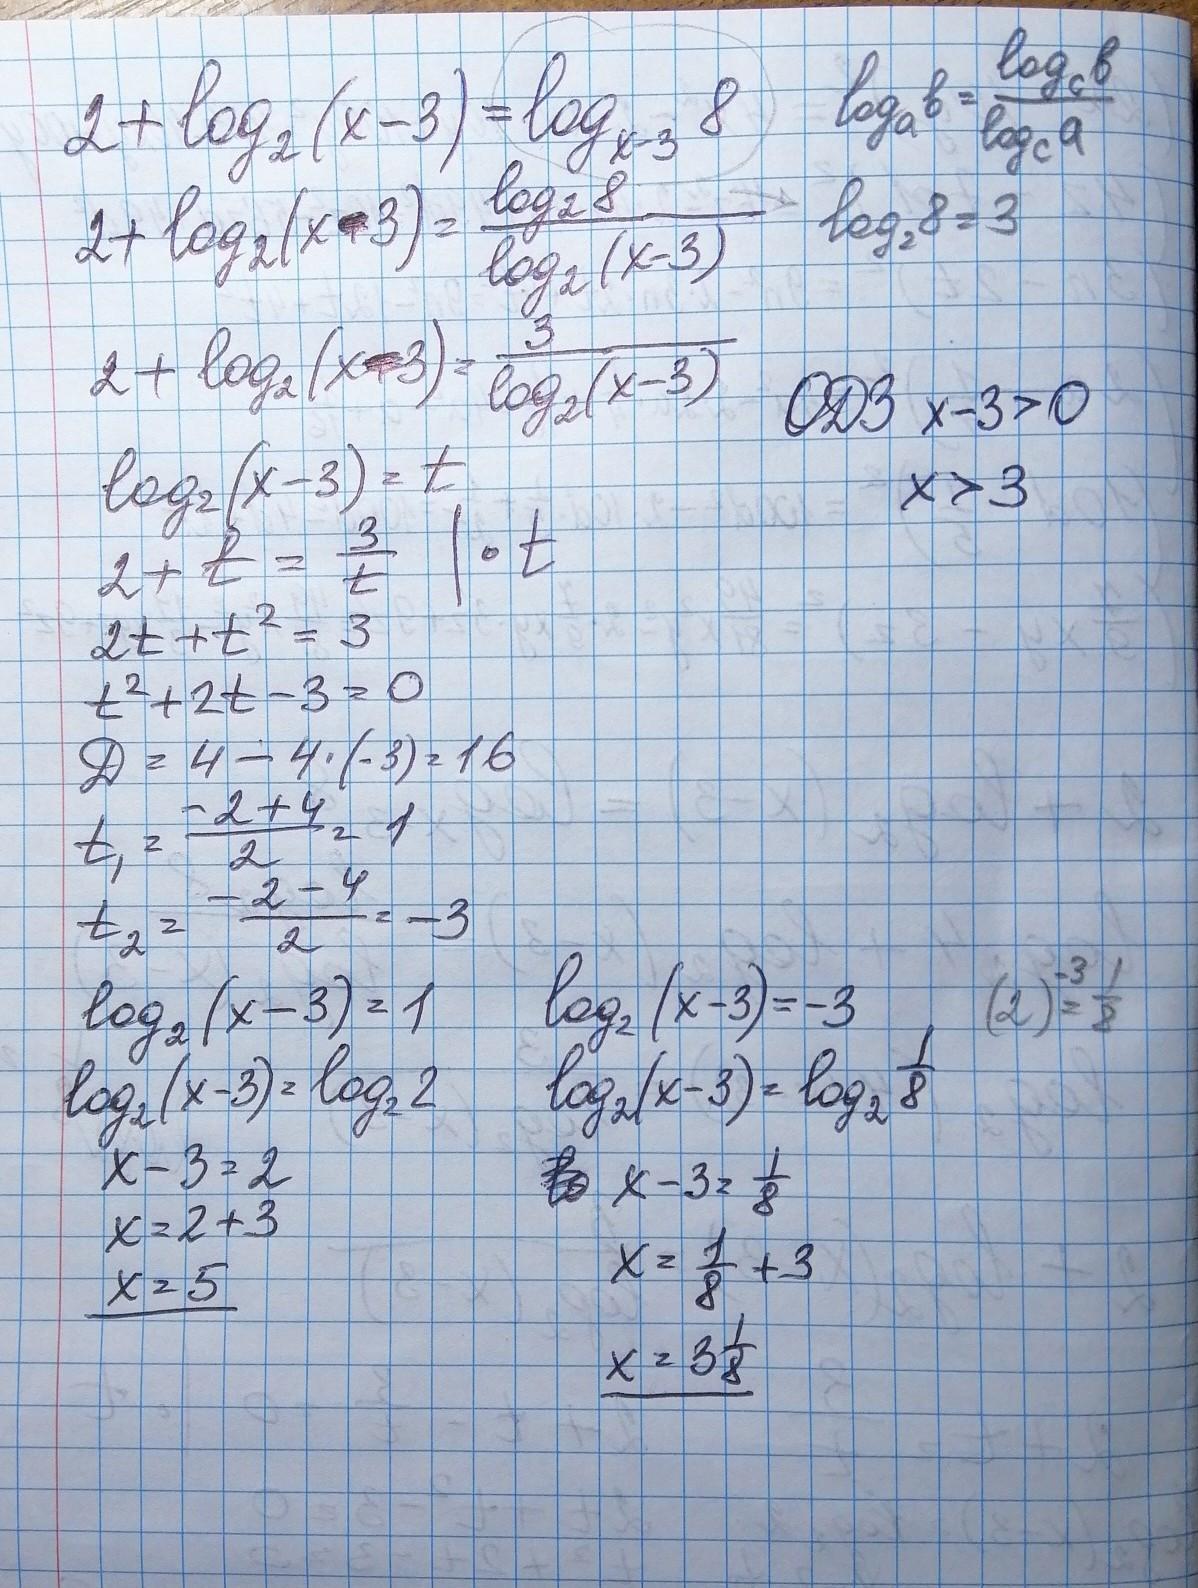 2 + log₂(x − 3) = logₓ₋₃ 8
logₐ в = log_c в / log_c a
2 + log₂(x − 3) = log₂ 8 / log₂(x − 3)
log₂ 8 = 3
2 + log₂(x − 3) = 3 / log₂(x − 3)
ОДЗ x − 3 > 0
x > 3
log₂(x − 3) = t
2 + t = 3/t | · t
2t + t² = 3
t² + 2t − 3 = 0
D = 4 − 4 · (−3) = 16
t₁ = (−2 + 4)/2 = 1
t₂ = (−2 − 4)/2 = −3
log₂(x − 3) = 1
log₂(x − 3) = log₂ 2
x − 3 = 2
x = 2 + 3
x = 5
log₂(x − 3) = −3
(2)⁻³ = 1/8
log₂(x − 3) = log₂ 1/8
x − 3 = 1/8
x = 1/8 + 3
x = 3 1/8